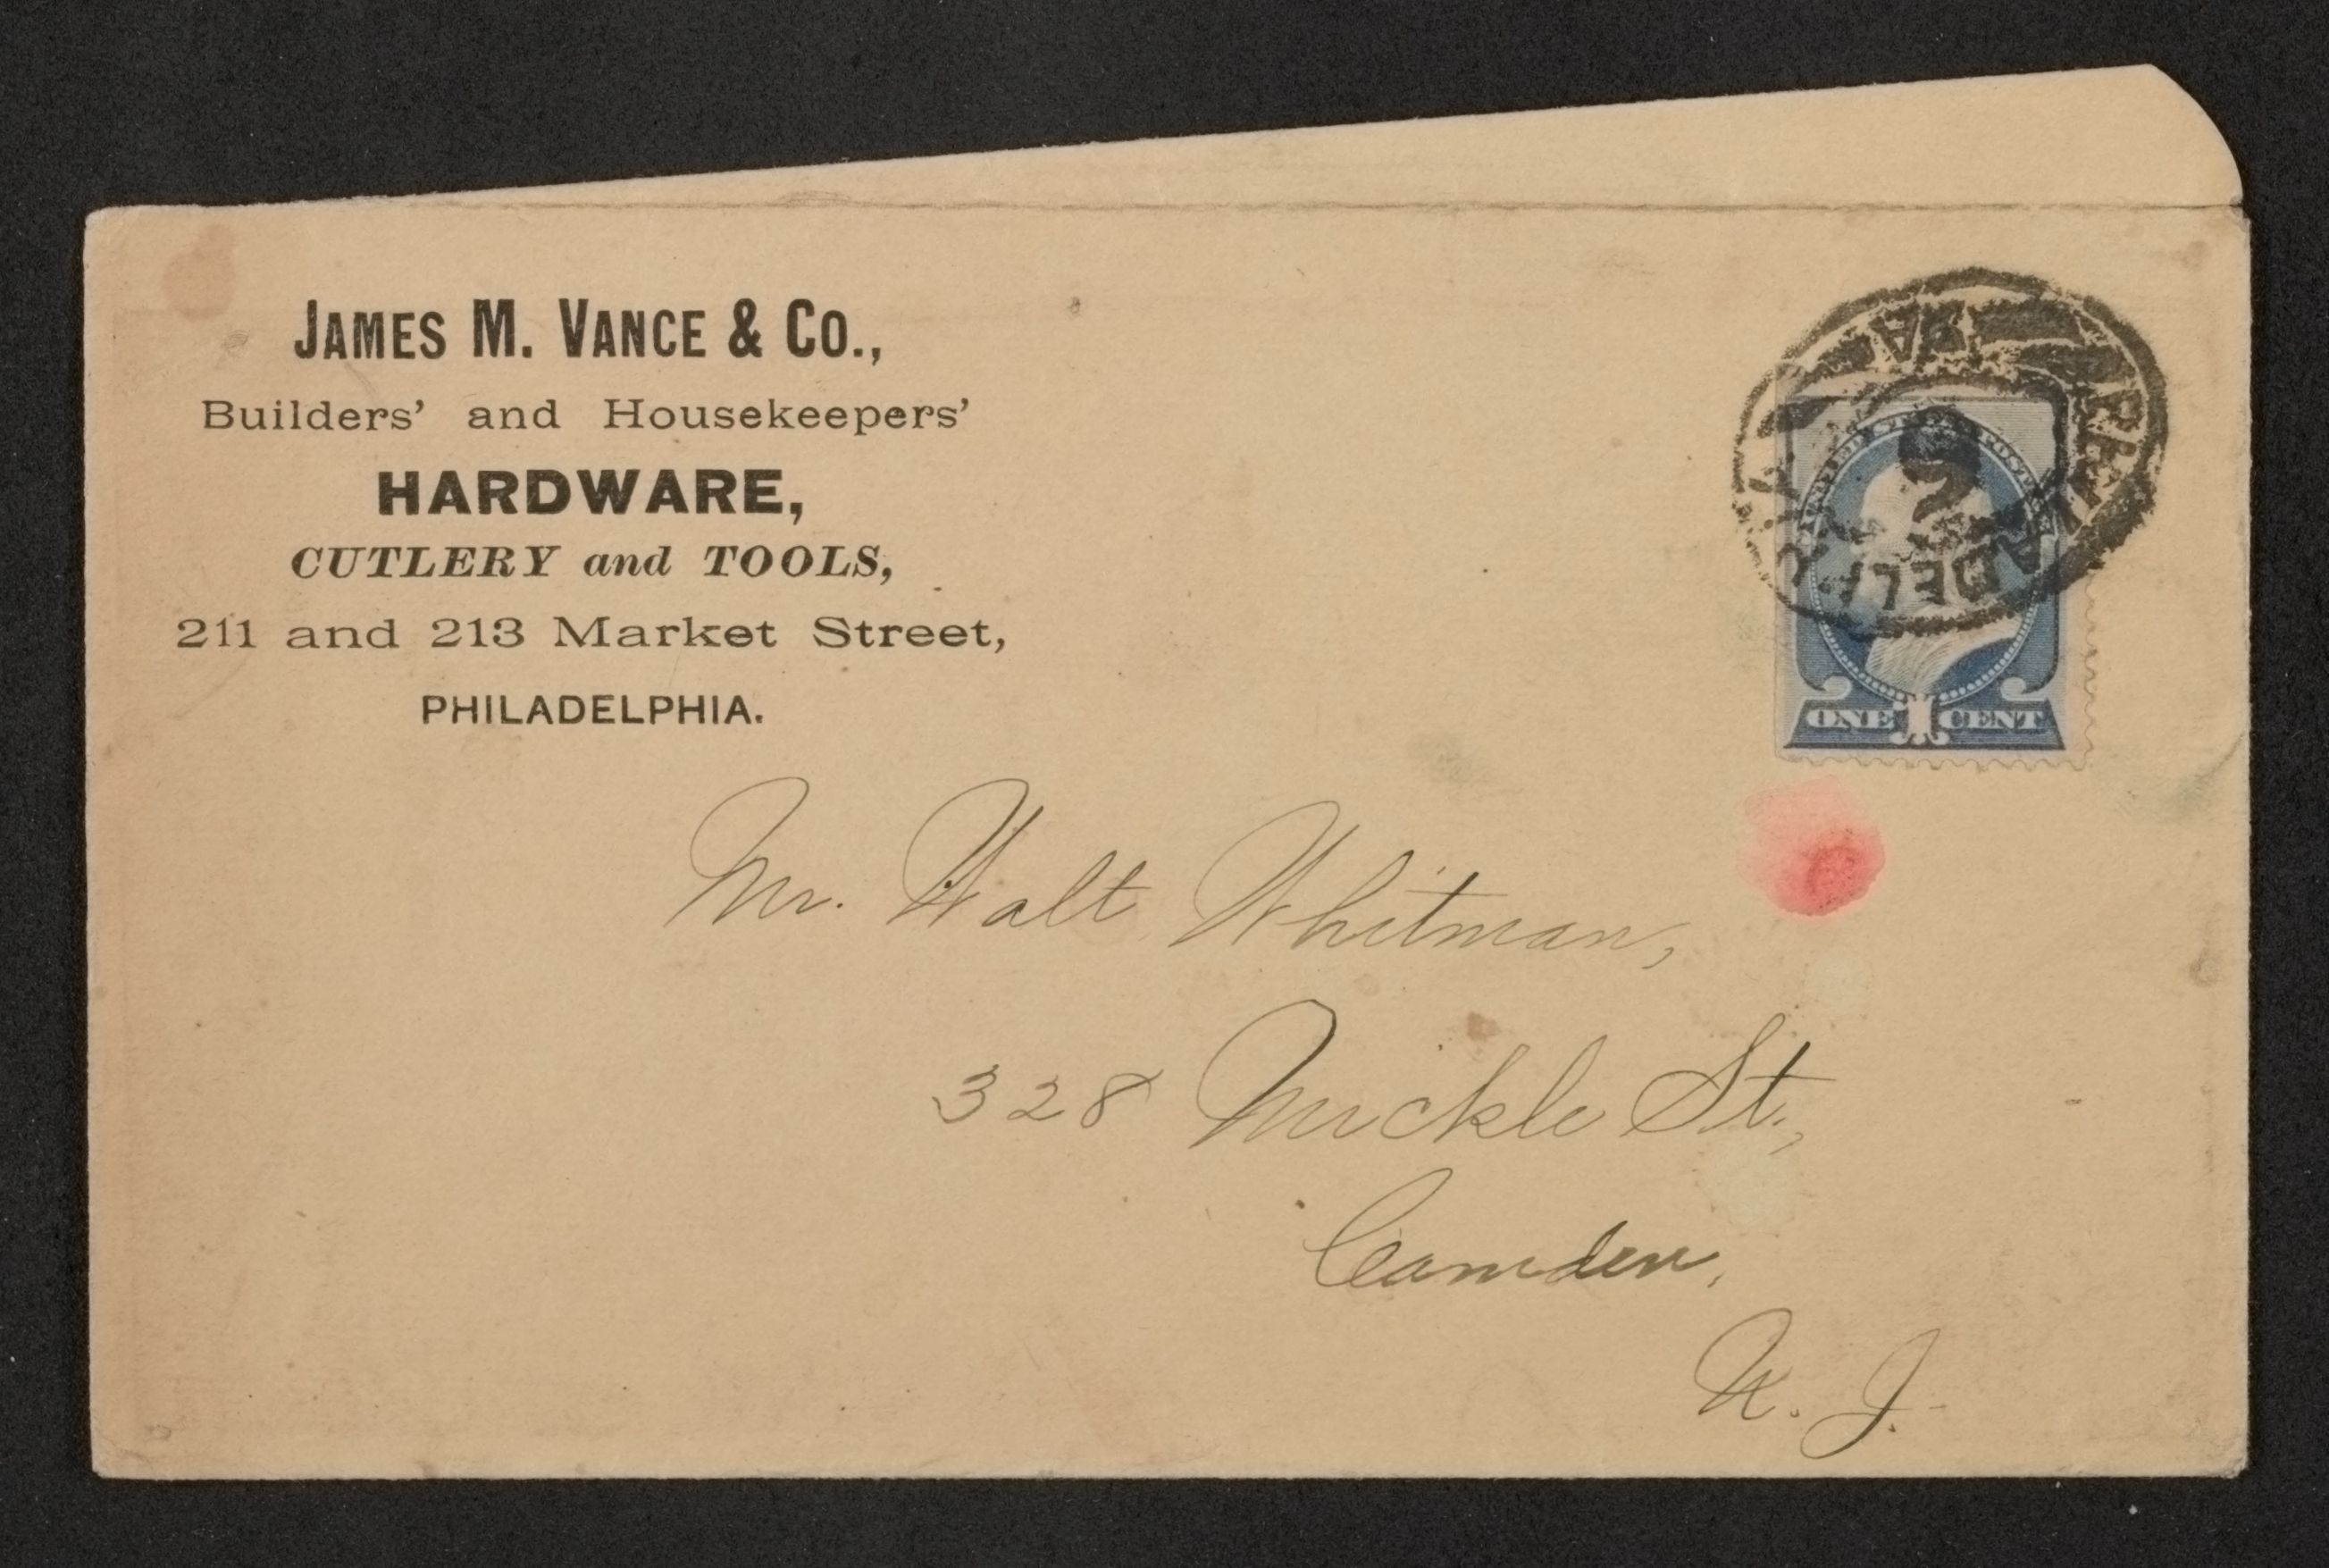 JAMES M. VANCE & CO.,
Builders' and Housekeepers'
HARDWARE,
CUTLERY and TOOLS,
211 and 213 Market Street,
PHILADELPHIA.
PHILADELPHIA
PA
UNITED STATES POSTAGE
ONE 1 CENT
Mr. Walt Whitman,
328 Mickle St.,
Camden,
N. J.